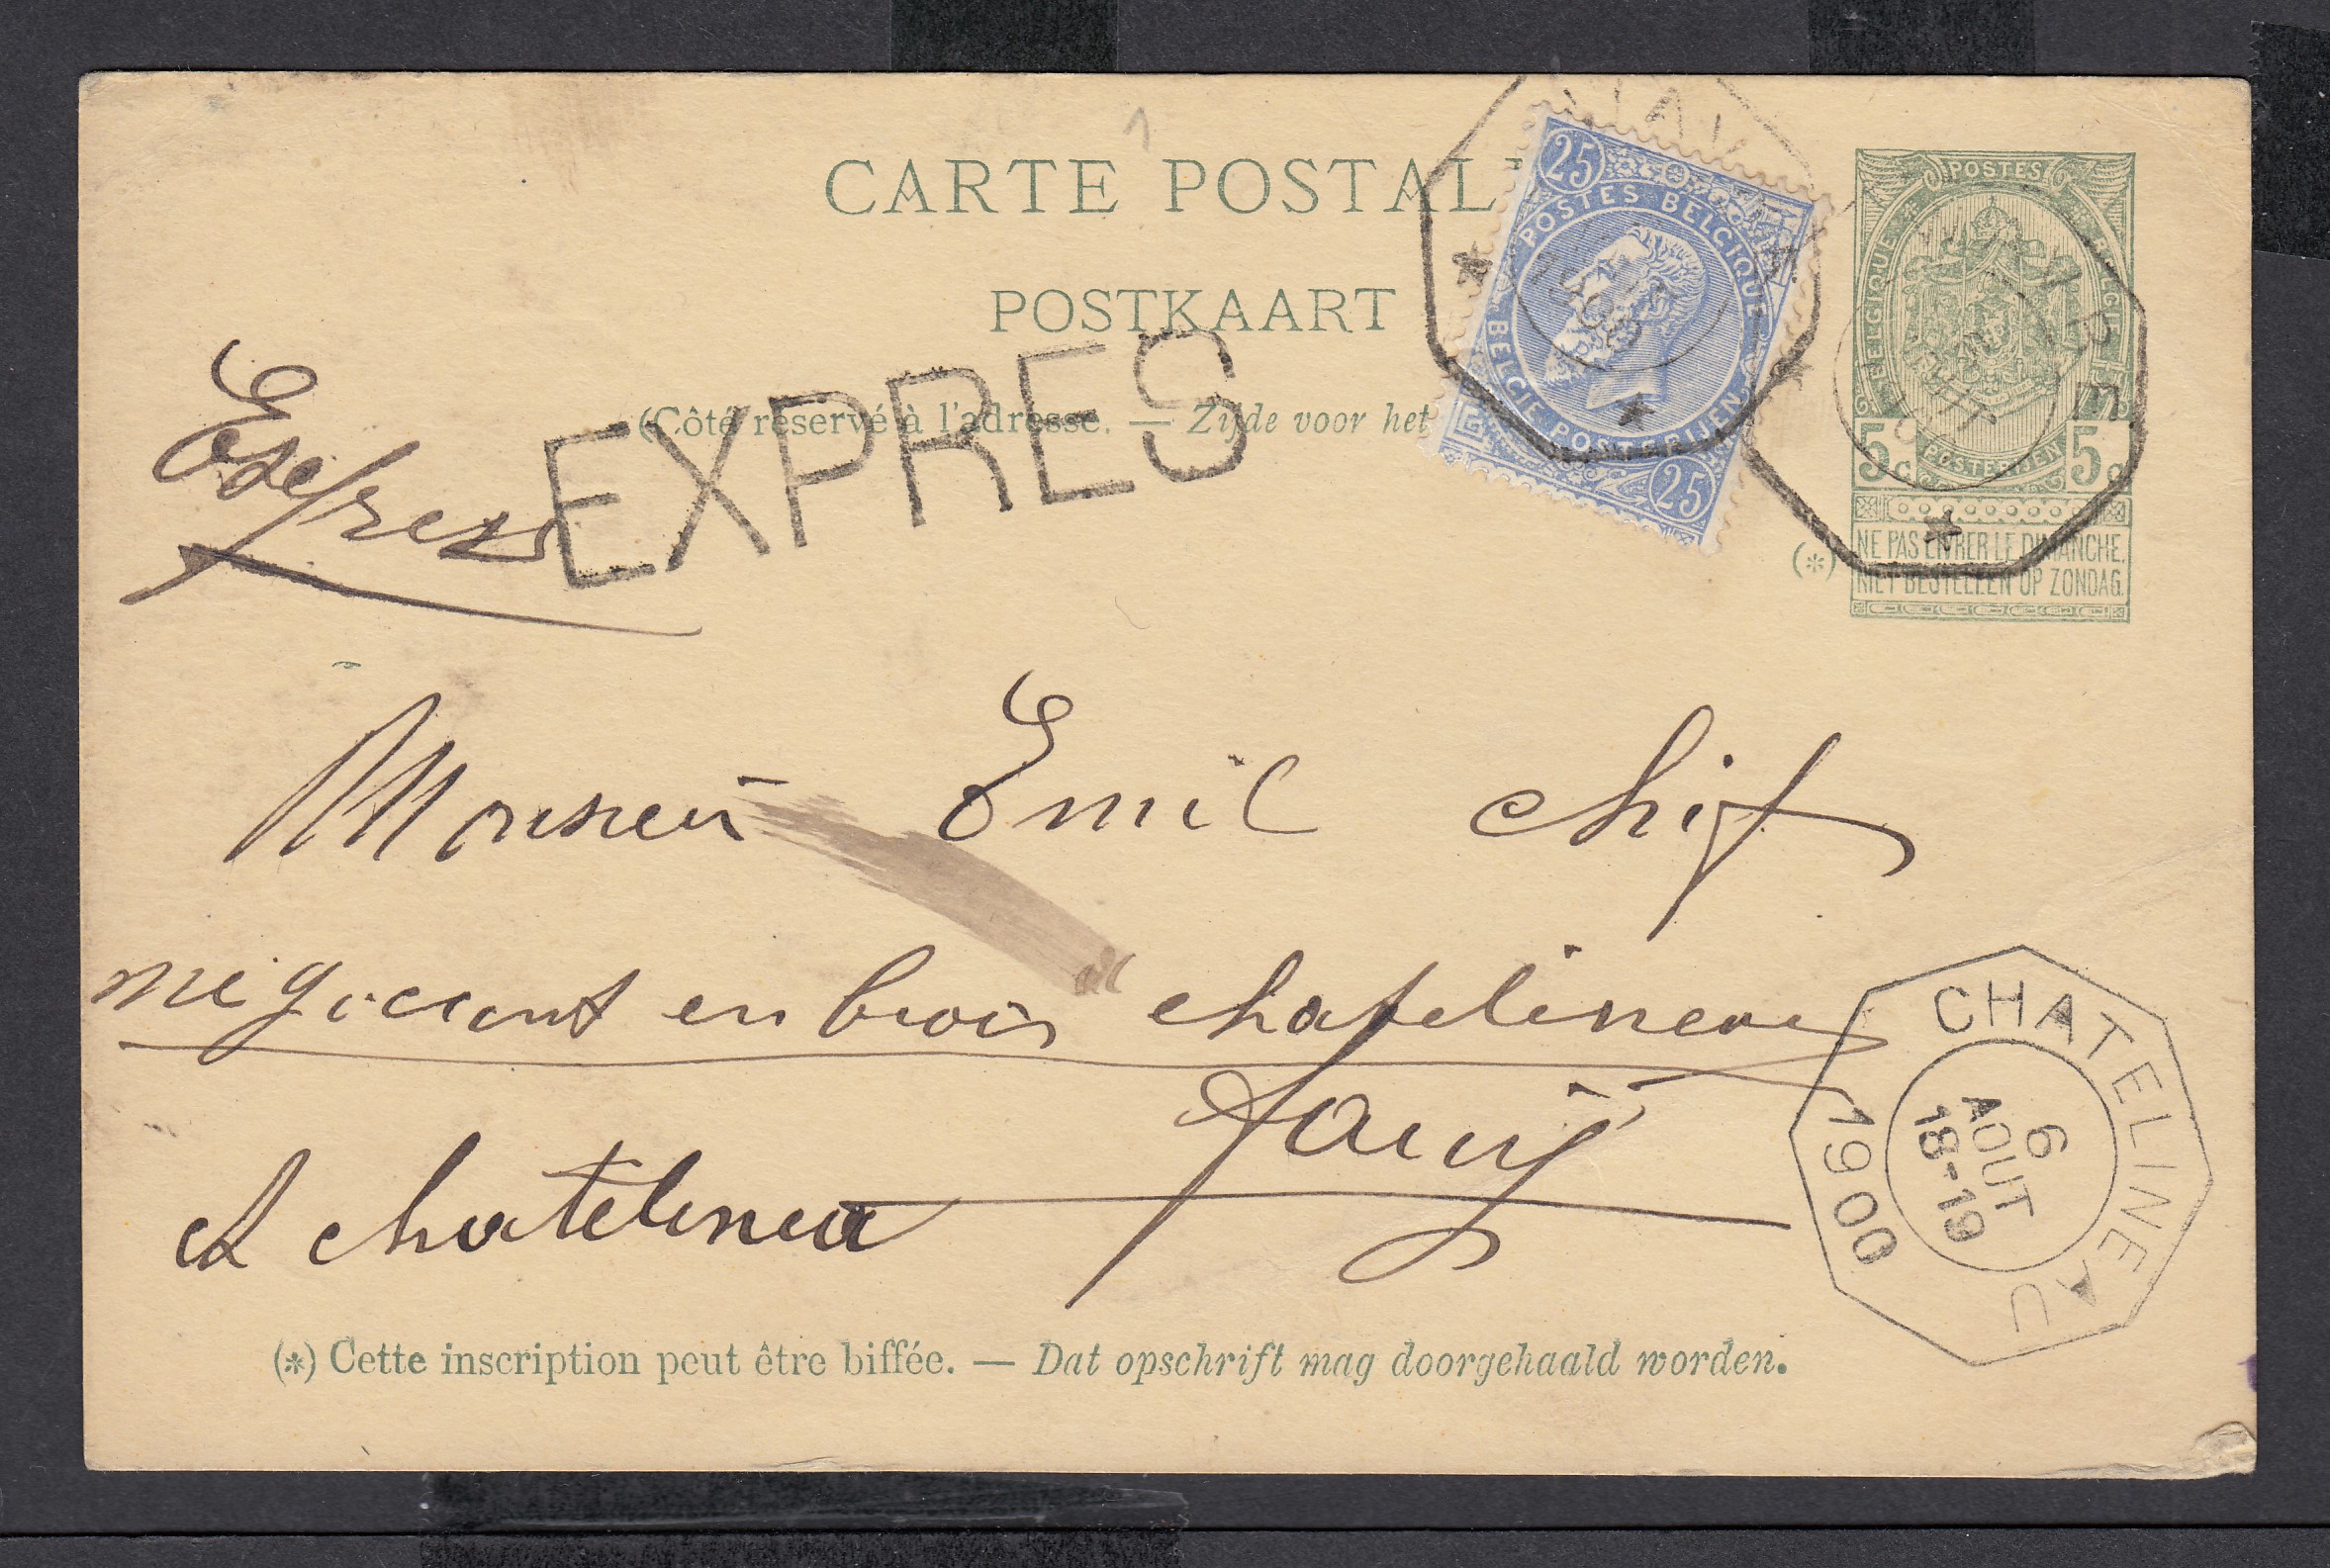 CARTE POSTAL
POSTKAART
(Côté réservé à l'adresse. — Zijde voor het
Express
EXPRES
25
POSTES BELGIQUE
BELGIE POSTERIJEN
25
POSTES
BELGIQUE BELGIE
POSTERIJEN
5 c 5 c
(*)
NE PAS LIVRER LE DIMANCHE.
NIET BESTELLEN OP ZONDAG.
Monsieur Emil Chif
négociant en bois
a chatelineau
CHATELINEAU
6
AOUT
18-19
1900
(*) Cette inscription peut être biffée. — Dat opschrift mag doorgehaald worden.